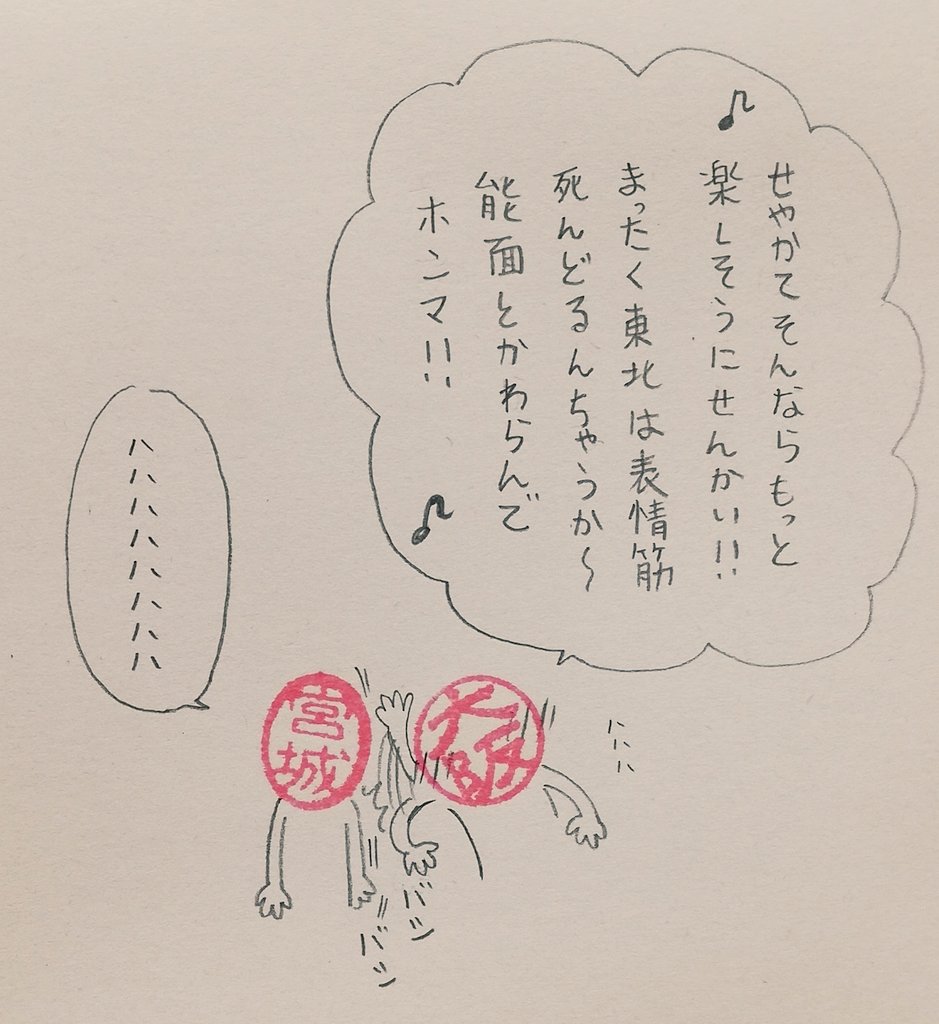 ♪
せやかてそんならもっと
楽しそうにせんかい!!
まったく東北は表情筋
死んどるんちゃうか〜
能面とかわらんで
ホンマ!!
♪
ハハハハハハハ
宮城
大阪
ハハハ
バシ
バシ